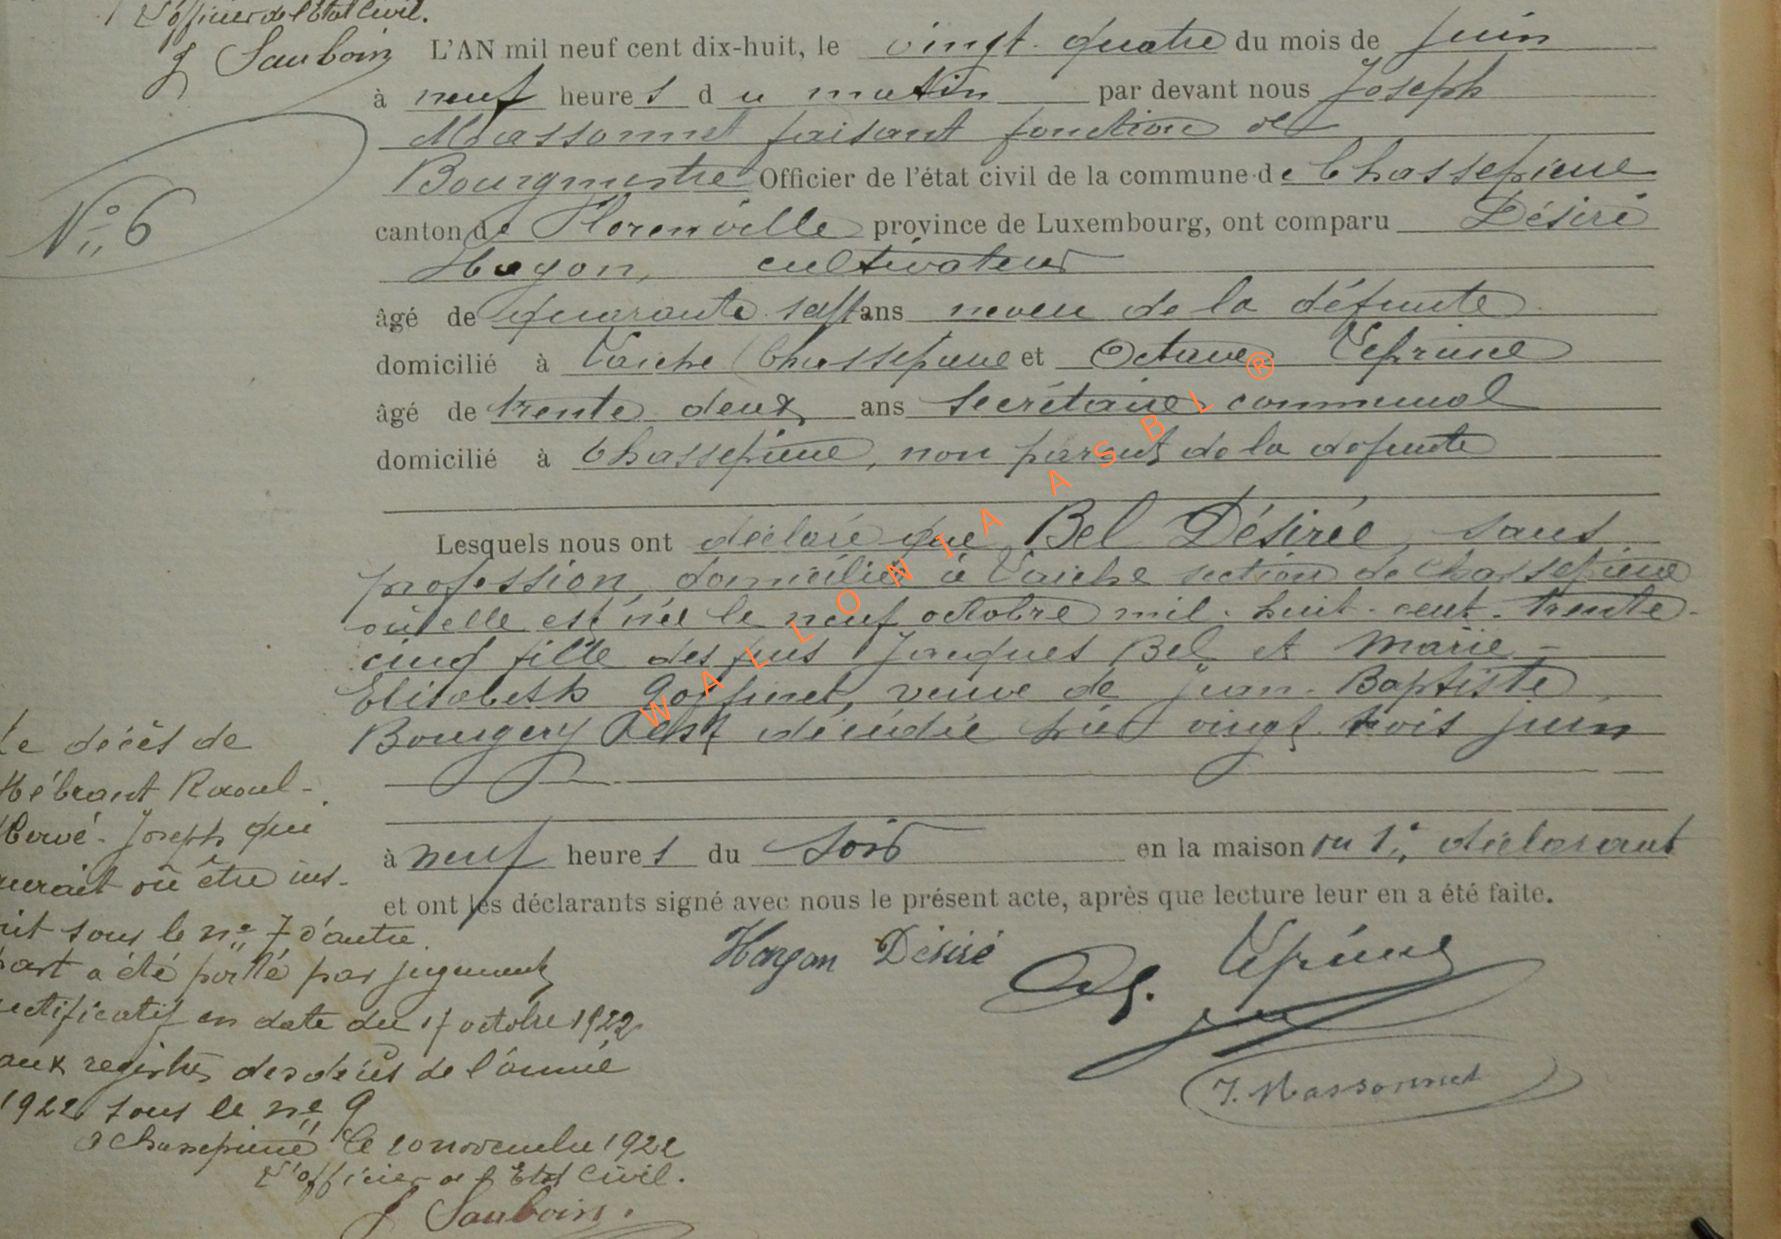 L'officier de l'Etat Civil.
J Sauboin
N° 6
L'AN mil neuf cent dix-huit, le vingt-quatre du mois de juin
à neuf heures du matin par devant nous Joseph
Massonnet faisant fonction de
Bourgmestre Officier de l'état civil de la commune de Chassepierre
canton de Florenville province de Luxembourg, ont comparu Désiré
Hazon, cultivateur
âgé de quarante sept ans neveu de la défunte
domicilié à Laiche (Chassepierre et Octave Lépine
âgé de trente deux ans secrétaire communal
domicilié à Chassepierre, non parent de la defunte
Lesquels nous ont déclaré que Bel Désirée, sans
profession, domiciliée à Laiche section de Chassepierre
où elle est née le neuf octobre mil-huit-cent-trente-
cinq fille des feus Jacques Bel et Marie-
Elisabeth Goffinet, veuve de Jean-Baptiste
Bourgery est décédée hier vingt trois juin
à neuf heures du soir en la maison du 1er déclarant
et ont les déclarants signé avec nous le présent acte, après que lecture leur en a été faite.
Désiré
J. Massonnet
Le décès de
Hébrant Raoul-
Hervé-Joseph qui
aurait dû être ins-
crit sous le n° 7 d'autre
part a été porté par jugement
rectificatif en date du 17 octobre 1922
aux registres des décès de l'année
1922 sous le n° 9
à Chassepierre le 20 novembre 1922
L'officier de l'Etat Civil.
J Sauboin.
WALLONIA ASBL ®